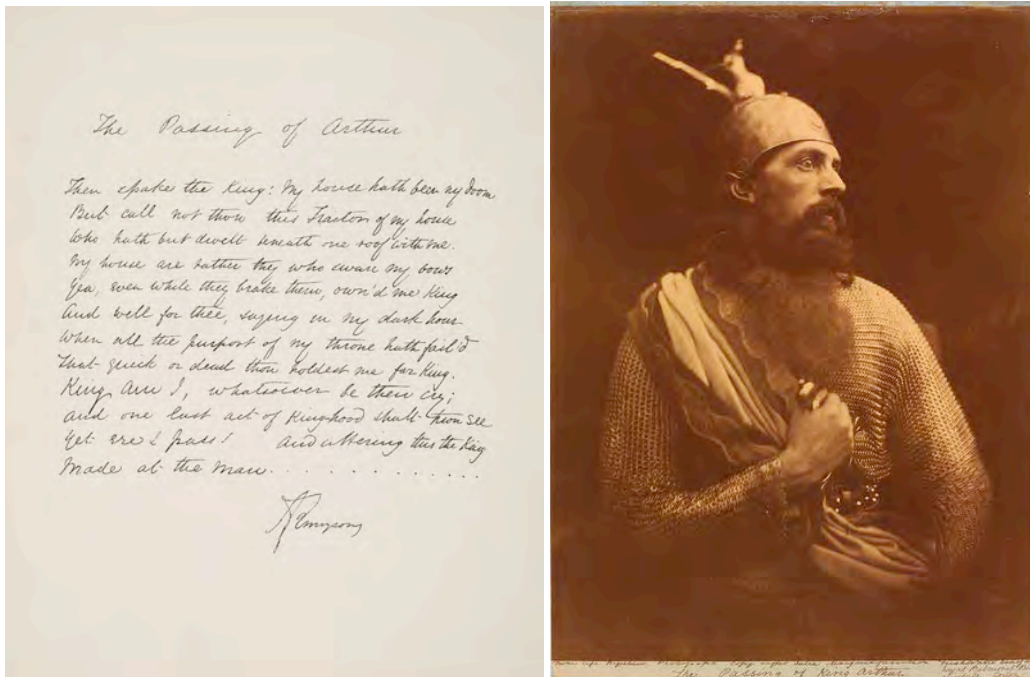 The Passing of Arthur
Then spake the King: My house hath been my doom
But call not thou this Traitor of my house
Who hath but dwelt beneath one roof with me.
My house are rather they who sware my vows
Yea, even while they brake them, own'd me King
And well for thee, saying in my dark hour
When all the purport of my throne hath fail'd
That quick or dead thou holdest me for King.
King am I, whatsoever be their cry;
And one last act of Kinghood shalt thou see
Yet ere I pass! And uttering this the King
Made at the man . . . . . . . . . . . .
A Tennyson
From Life Copy right Julia Margaret Cameron
The Passing of King Arthur